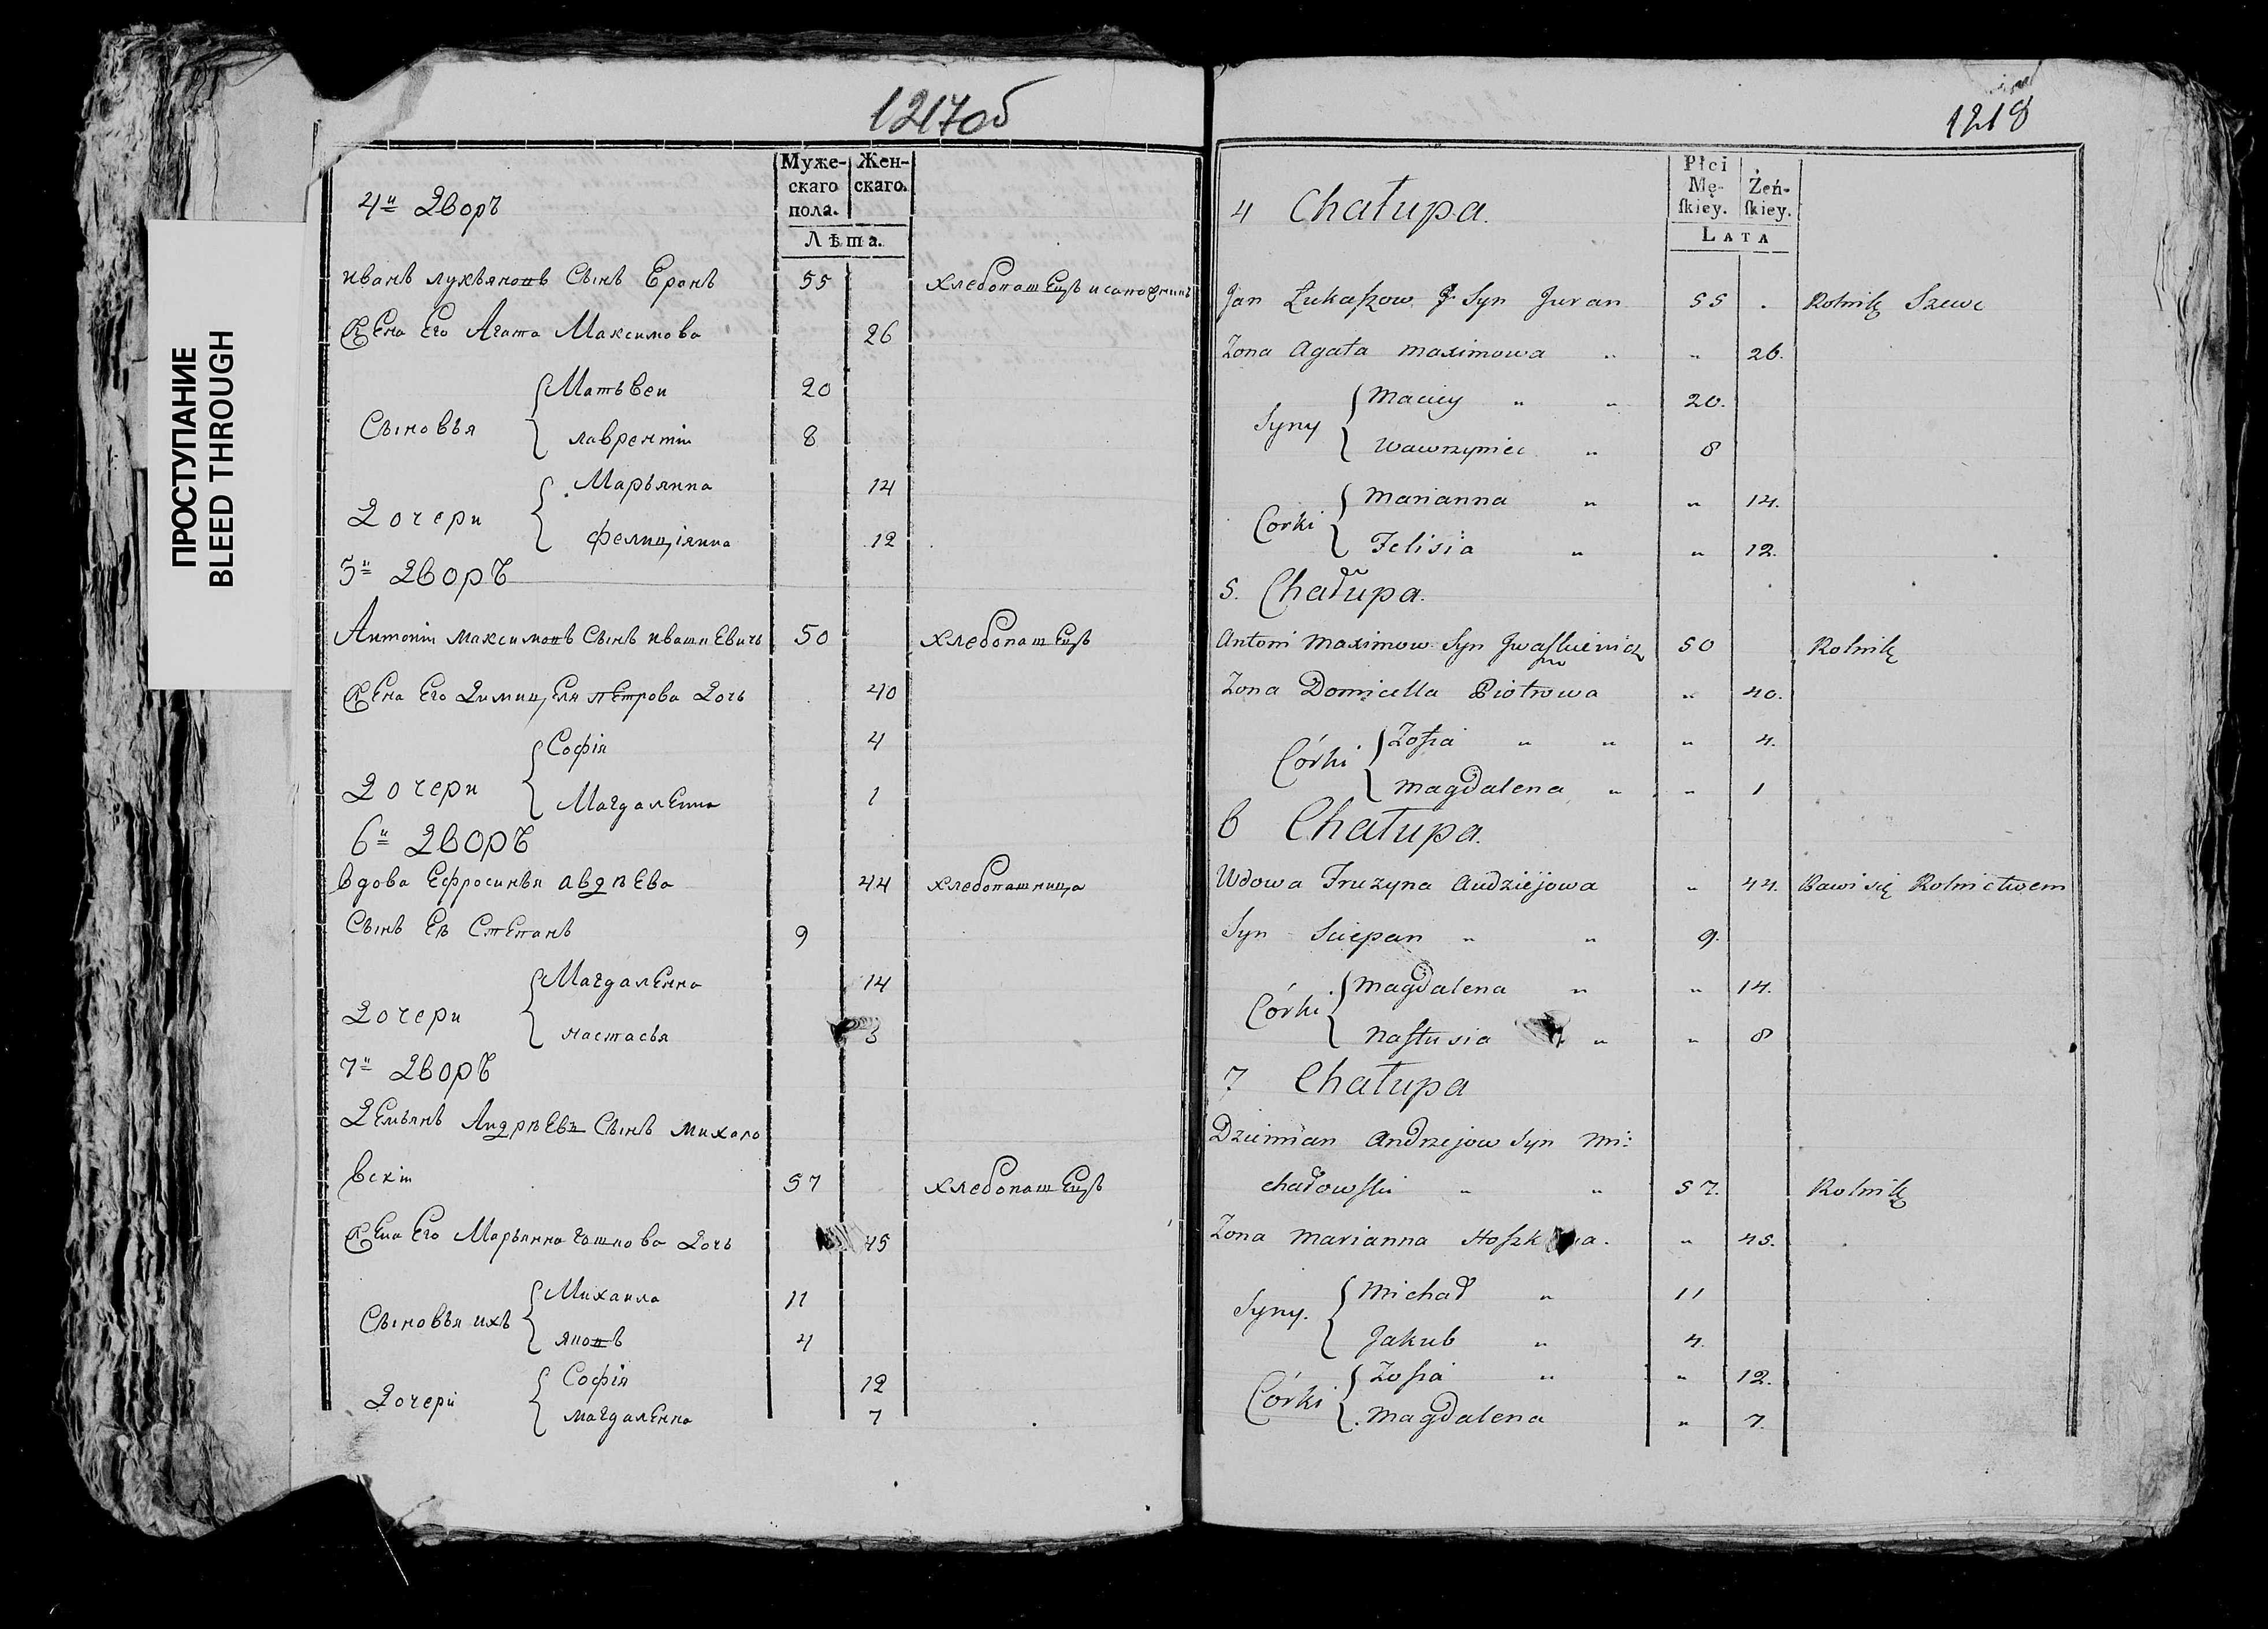 ПРОСТУПАНИЕ
BLEED THROUGH
1217об
Муже- Жен-
скаго скаго.
пола.
Лѣта.
4й Дворъ
иванъ лукьяновъ Сынъ Еранъ 55 хлебопашецъ и сапожникъ
Жена Его Агата Максимова 26
Сыновья
Матьвеи 20
лаврентіи 8
Дочери
Марьянна 14
фелиціянна 12
5й Дворъ
Антоніи максимовъ Сынъ ивашкЕвичъ 50 хлебопашЕцъ
Жена Его Димицеля пЕтрова Дочь 40
Дочери
Софія 4
МагдалЕнна 1
6й Дворъ
вдова Ефросинья авдѣЕва 44 хлебопашница
Сынъ Еѣ СтЕпанъ 9
Дочери
МагдалЕнна 14
настасья 8
7й Дворъ
ДЕмьянъ АндрѣЕвъ Сынъ михало
вскіи 57 хлебопашЕцъ
ЖЕна Его Марьянна гашкова Дочь 45
Сыновья ихъ
Михаила 11
яковъ 4
Дочери
Софія 12
магдалЕнна 7
1218
Płci
Mę- Żeń-
ſkiey. ſkiey.
LATA
4 Chałupa.
Jan Łukaſzow Syn Juran 55 . Rolnik Szewc
Zona Agata Maximowa „ „ 26.
Syny
Maciey „ „ 20.
Wawrzyniec „ 8
Corki
Marianna „ „ 14.
Felisia „ „ 12.
5. Chałupa.
Antoni Maximow Syn Jwaſkiewicz 50 Rolnik
Zona Domicella Piotrowa „ 40.
Córki
Zofia „ „ „ 4.
Magdalena „ „ 1
6 Chałupa.
Wdowa Fruzyna Audziejowa „ 44. Bawi się Rolnictwem
Syn Sciepan „ „ 9.
Córki
Magdalena „ „ 14.
Naſtusia „ „ 8
7 Chałupa
Dziemian Andrzejow Syn Mi:
chałowſki „ „ 57. Rolnik
Zona Marianna „ 45.
Syny.
Michał „ 11
Jakub „ 4.
Córki
Zofia „ „ 12.
Magdalena „ 7.